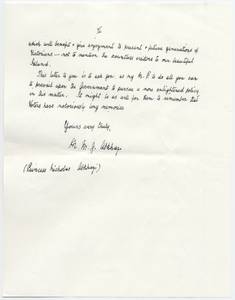 II
which will benefit & give enjoyment to present & future generations of
Victorians — not to mention the countless visitors to our beautiful
Island.
This letter to you is to ask you as my M.P to do all you can
to prevail upon the Government to pursue a more enlightened policy
in this matter. It might be as well for them to remember that
Voters have notoriously long memories
Yours very truly,
M. J. Abkhazi
(Princess Nicholas Abkhazi)